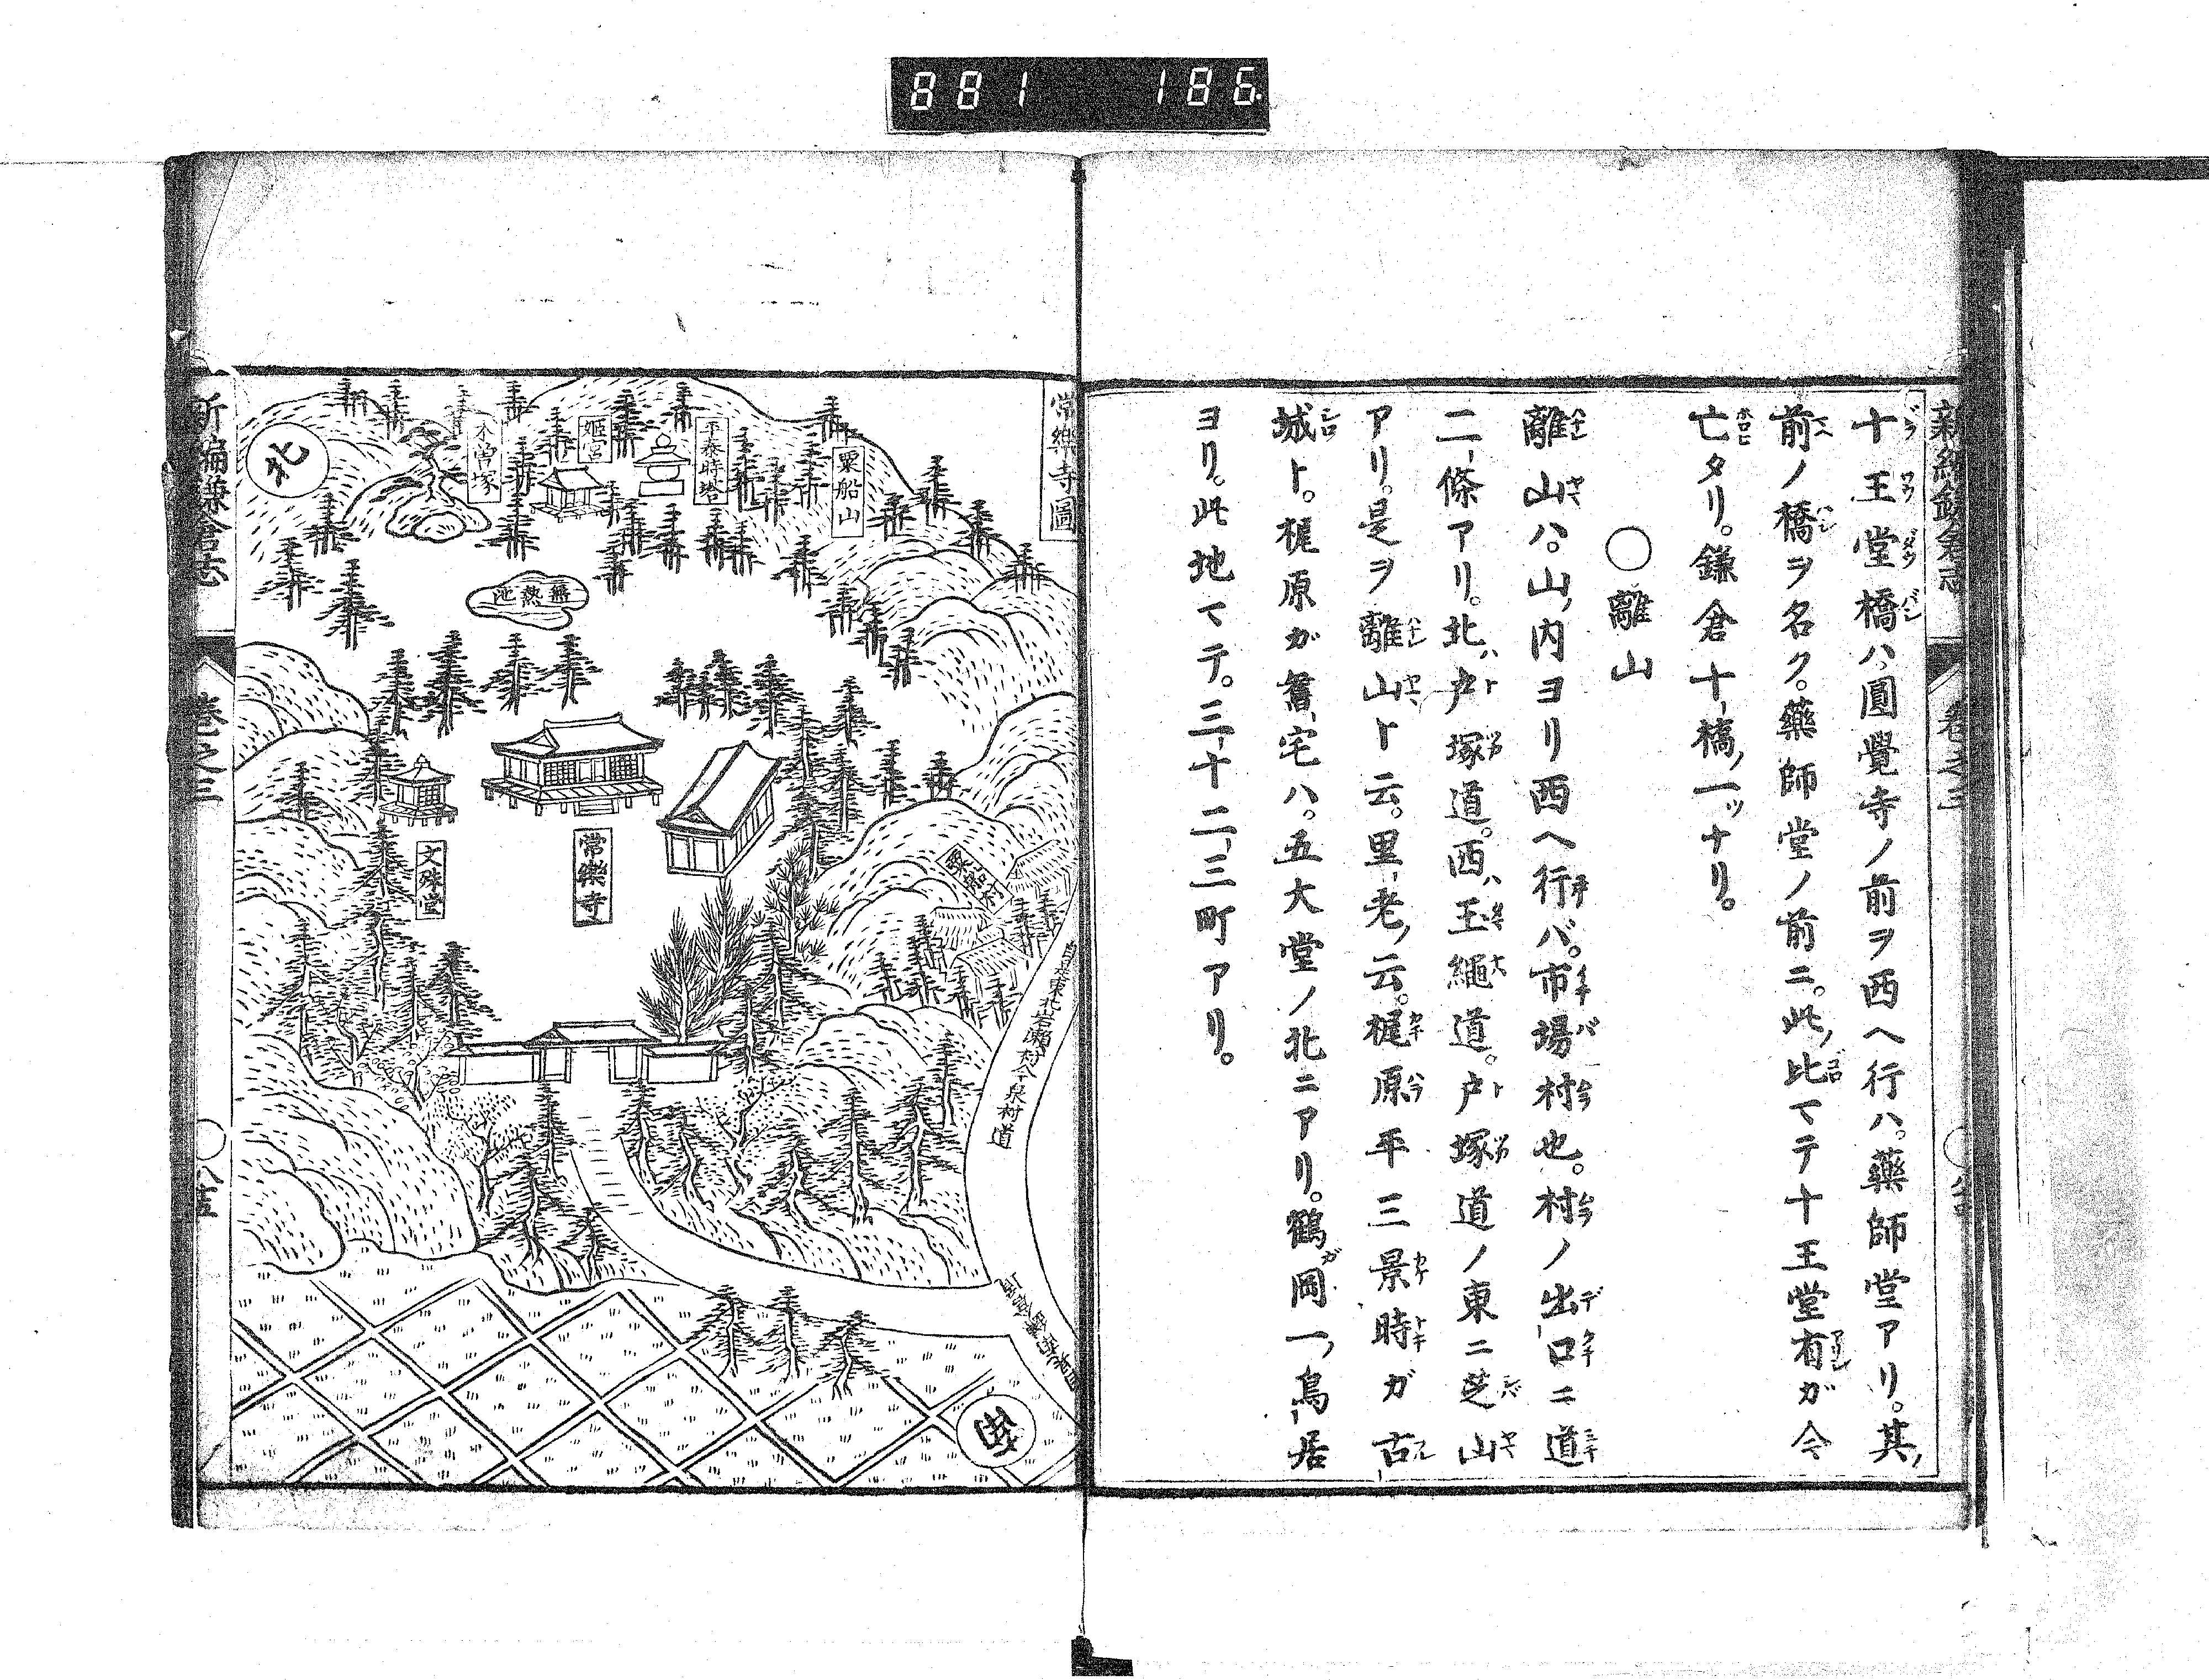 881 186
十王堂橋ハ圓覺寺ノ前ヲ西ヘ行ハ。藥師堂アリ。其
前ノ橋ヲ名ク。藥師堂ノ前ニ。此比マテ十王堂有ガ今
亡タリ。鎌倉十橋ノ一ッナリ。
○離山
離山ハ。山ノ内ヨリ西ヘ行バ。市場村也。村ノ出口ニ道
二條アリ。北ハ戸塚道。西ハ玉繩道。戸塚道ノ東ニ芝山
アリ。是ヲ離山ト云。里老ノ云。梶原平三景時ガ古
城ト。梶原ガ舊宅ハ。五大堂ノ北ニアリ。鶴岡一ノ鳥居
ヨリ。此地マテ。三十二三町アリ。
常樂寺圖
粟船山
平泰時塔
姫宮
木曽塚
北
無熱池
常樂寺
文殊堂
粟船村
西
新編鎌倉志 卷之三